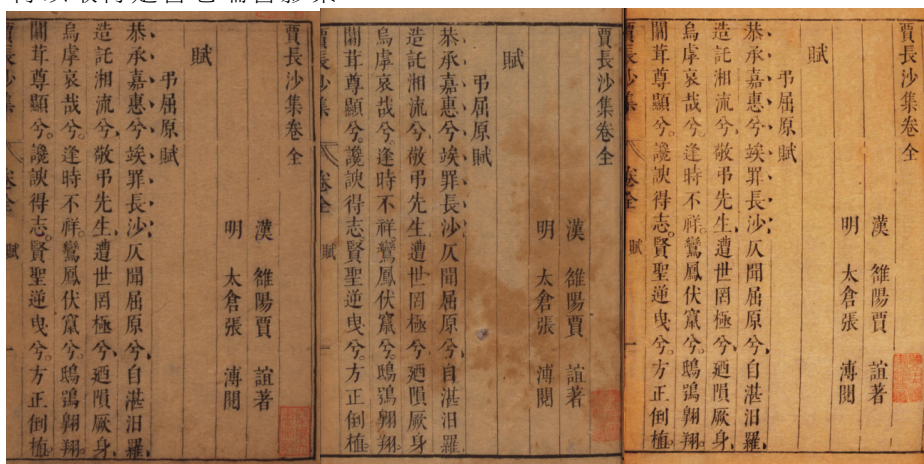 賈長沙集卷全
漢 雒陽賈 誼著
明 太倉張 溥閱
賦
弔屈原賦
恭承嘉惠兮、竢罪長沙、仄聞屈原兮、自湛汨羅、
造託湘流兮、敬弔先生、遭世罔極兮、廼隕厥身、
烏虖哀哉兮。逢時不祥。鸞鳳伏竄兮。鴟鴞翱翔。
闒茸尊顯兮。讒諛得志。賢聖逆曳兮。方正倒植。
賈長沙集 卷全 賦 一
賈長沙集卷全
漢 雒陽賈 誼著
明 太倉張 溥閱
賦
弔屈原賦
恭承嘉惠兮竢罪長沙仄聞屈原兮自湛汨羅
造託湘流兮敬弔先生遭世罔極兮廼隕厥身
烏虖哀哉兮。逢時不祥鸞鳳伏竄兮。鴟鴞翱翔
闒茸尊顯兮。讒諛得志賢聖逆曳兮。方正倒植
賈長沙集 卷全 賦 一
賈長沙集卷全
漢 雒陽賈 誼著
明 太倉張 溥閱
賦
弔屈原賦
恭承嘉惠兮、竢罪長沙、仄聞屈原兮、自湛汨羅、
造託湘流兮、敬弔先生、遭世罔極兮、廼隕厥身、
烏虖哀哉兮。逢時不祥。鸞鳳伏竄兮。鴟鴞翱翔。
闒茸尊顯兮。讒諛得志。賢聖逆曳兮。方正倒植。
賈長沙集 卷全 賦 一